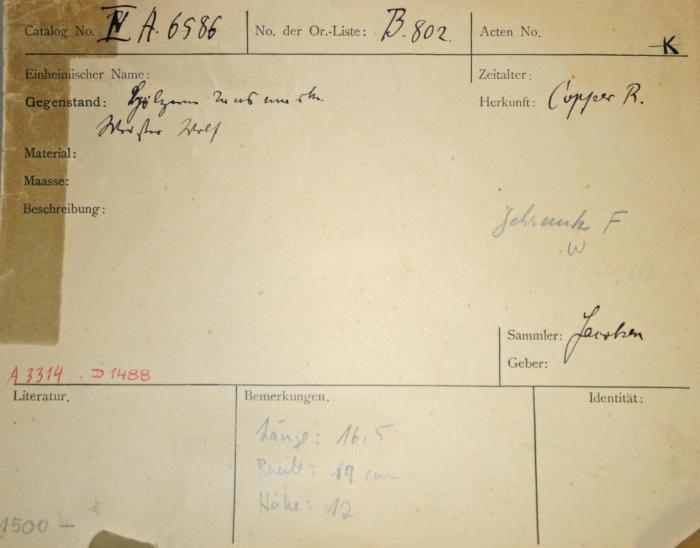 Catalog No. IV A. 6586 No. der Or.-Liste: B. 802. Acten No.
K
Einheimischer Name: Zeitalter:
Gegenstand: Hölzerne Herkunft: Copper R.
Wolf
Material:
Maasse:
Beschreibung:
Schrank F
W
Sammler: Jacobsen
Geber:
A 3314 . D 1488
Literatur. Bemerkungen. Identität:
Länge: 16,5
Breite: 19 cm
Höhe: 12
1500 —